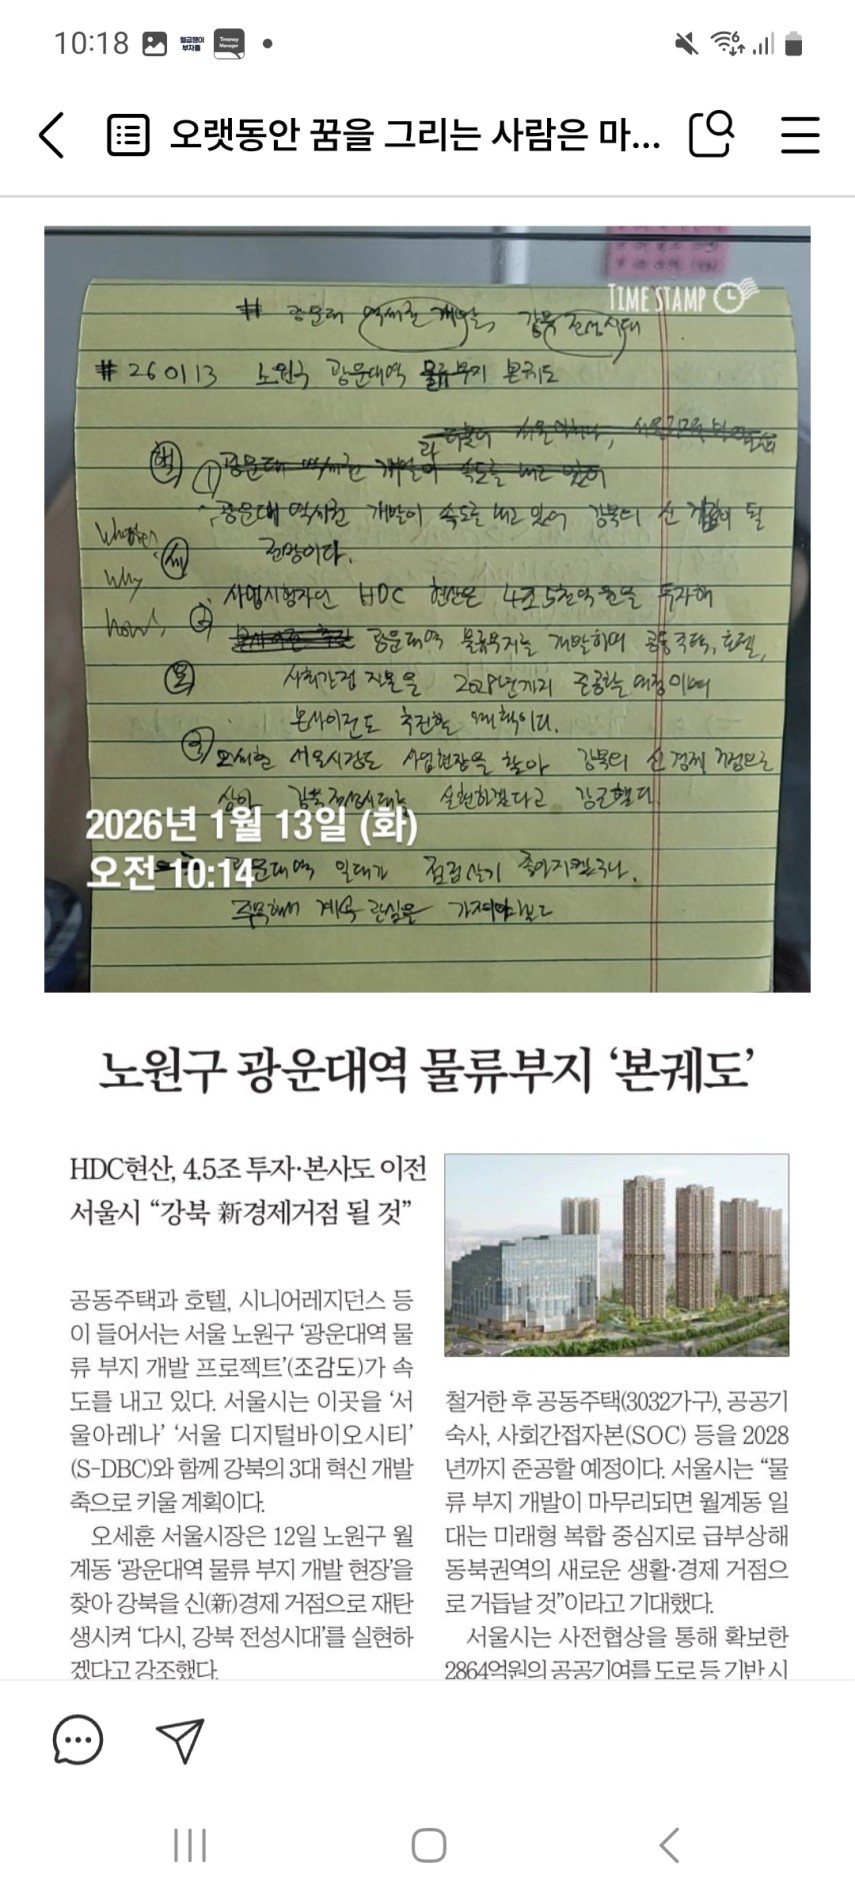 10:18
오랫동안 꿈을 그리는 사람은 마...
TIME STAMP
# 광운대 역세권 개발, 강북 전성시대
# 260113 노원구 광운대역 물류부지 본궤도
핵
①
광운대 역세권 개발이 속도를 내고 있어
광운대 역세권 개발이 속도를 내고 있어 강북의 신 거점이 될
전망이다.
why
how
②
사업시행자인 HDC 현산은 4조5천억원을 투자해
광운대역 물류부지를 개발하며 공동주택, 호텔,
사회간접 자본을 2028년까지 준공할 예정이며
본사이전도 추진할 계획이다.
③ 오세훈 서울시장도 사업현장을 찾아 강북의 신 경제 거점으로
강북 전성시대를 실현하겠다고 강조했다.
2026년 1월 13일 (화)
오전 10:14
광운대역 일대가 점점 살기 좋아지겠구나.
주목해서 계속 관심을 가져야보다
노원구 광운대역 물류부지 ‘본궤도’
HDC현산, 4.5조 투자·본사도 이전
서울시 “강북 新경제거점 될 것”
공동주택과 호텔, 시니어레지던스 등
이 들어서는 서울 노원구 ‘광운대역 물
류 부지 개발 프로젝트’(조감도)가 속
도를 내고 있다. 서울시는 이곳을 ‘서
울아레나’ ‘서울 디지털바이오시티’
(S-DBC)와 함께 강북의 3대 혁신 개발
축으로 키울 계획이다.
오세훈 서울시장은 12일 노원구 월
계동 ‘광운대역 물류 부지 개발 현장’을
찾아 강북을 신(新)경제 거점으로 재탄
생시켜 ‘다시, 강북 전성시대’를 실현하
겠다고 강조했다.
철거한 후 공동주택(3032가구), 공공기
숙사, 사회간접자본(SOC) 등을 2028
년까지 준공할 예정이다. 서울시는 “물
류 부지 개발이 마무리되면 월계동 일
대는 미래형 복합 중심지로 급부상해
동북권역의 새로운 생활·경제 거점으
로 거듭날 것”이라고 기대했다.
서울시는 사전협상을 통해 확보한
2864억원의 공공기여를 도로 등 기반 시